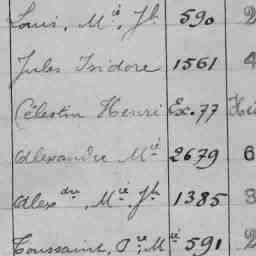 Louis, M.ie Jh 590 2
Jules Isidore 1561 4
Célestin Henri Ex.77
Alexandre M.ie 2679 6
Alex.dre, M.ie Jh 1385 3
Toussaint, P.re, M.ie 591 2